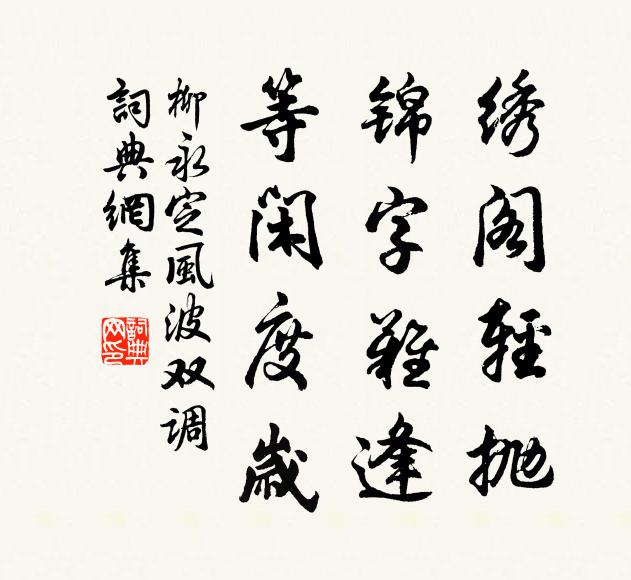 绣阁輕抛
锦字難逢
等閑度歲
柳永定風波双调
詞典網集
詞典網印